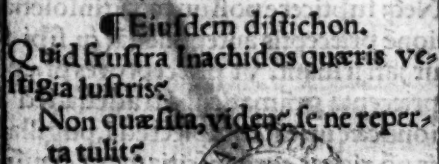 ¶ Eiusdem distichon.
Quid frustra Inachidos quæris ve-
stigia lustris?
Non quæsita, videns se ne reper-
ta tulit?
A. BOD